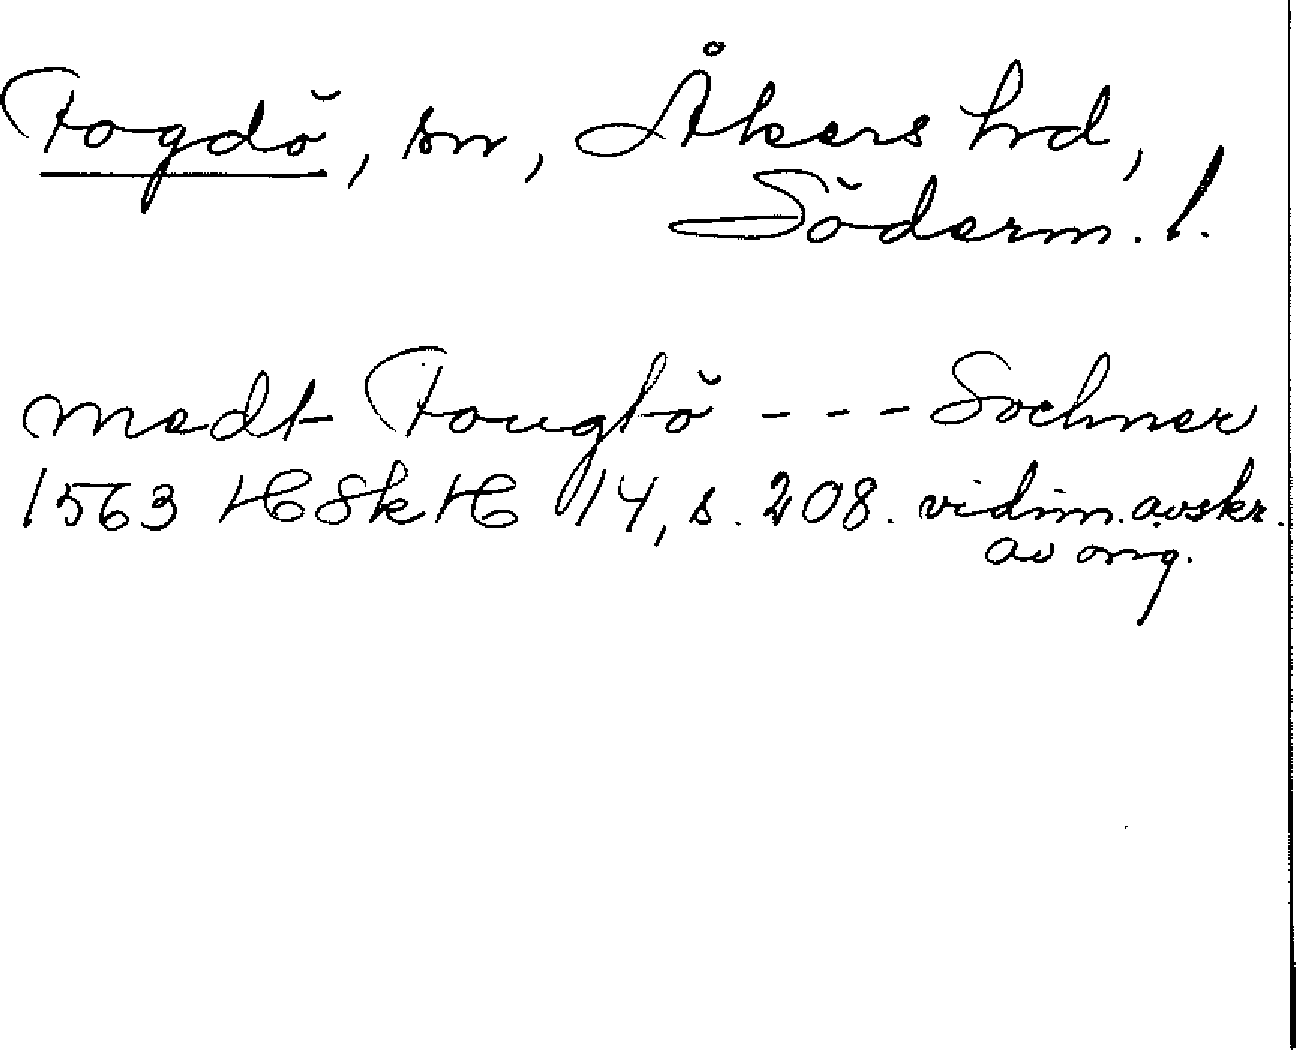 Fogdö, sn, Åkers hrd,
Söderm. l.
medt Fougtö - - - Sochner
1563 HSkH 14, s. 208. vidim. avskr.
av orig.